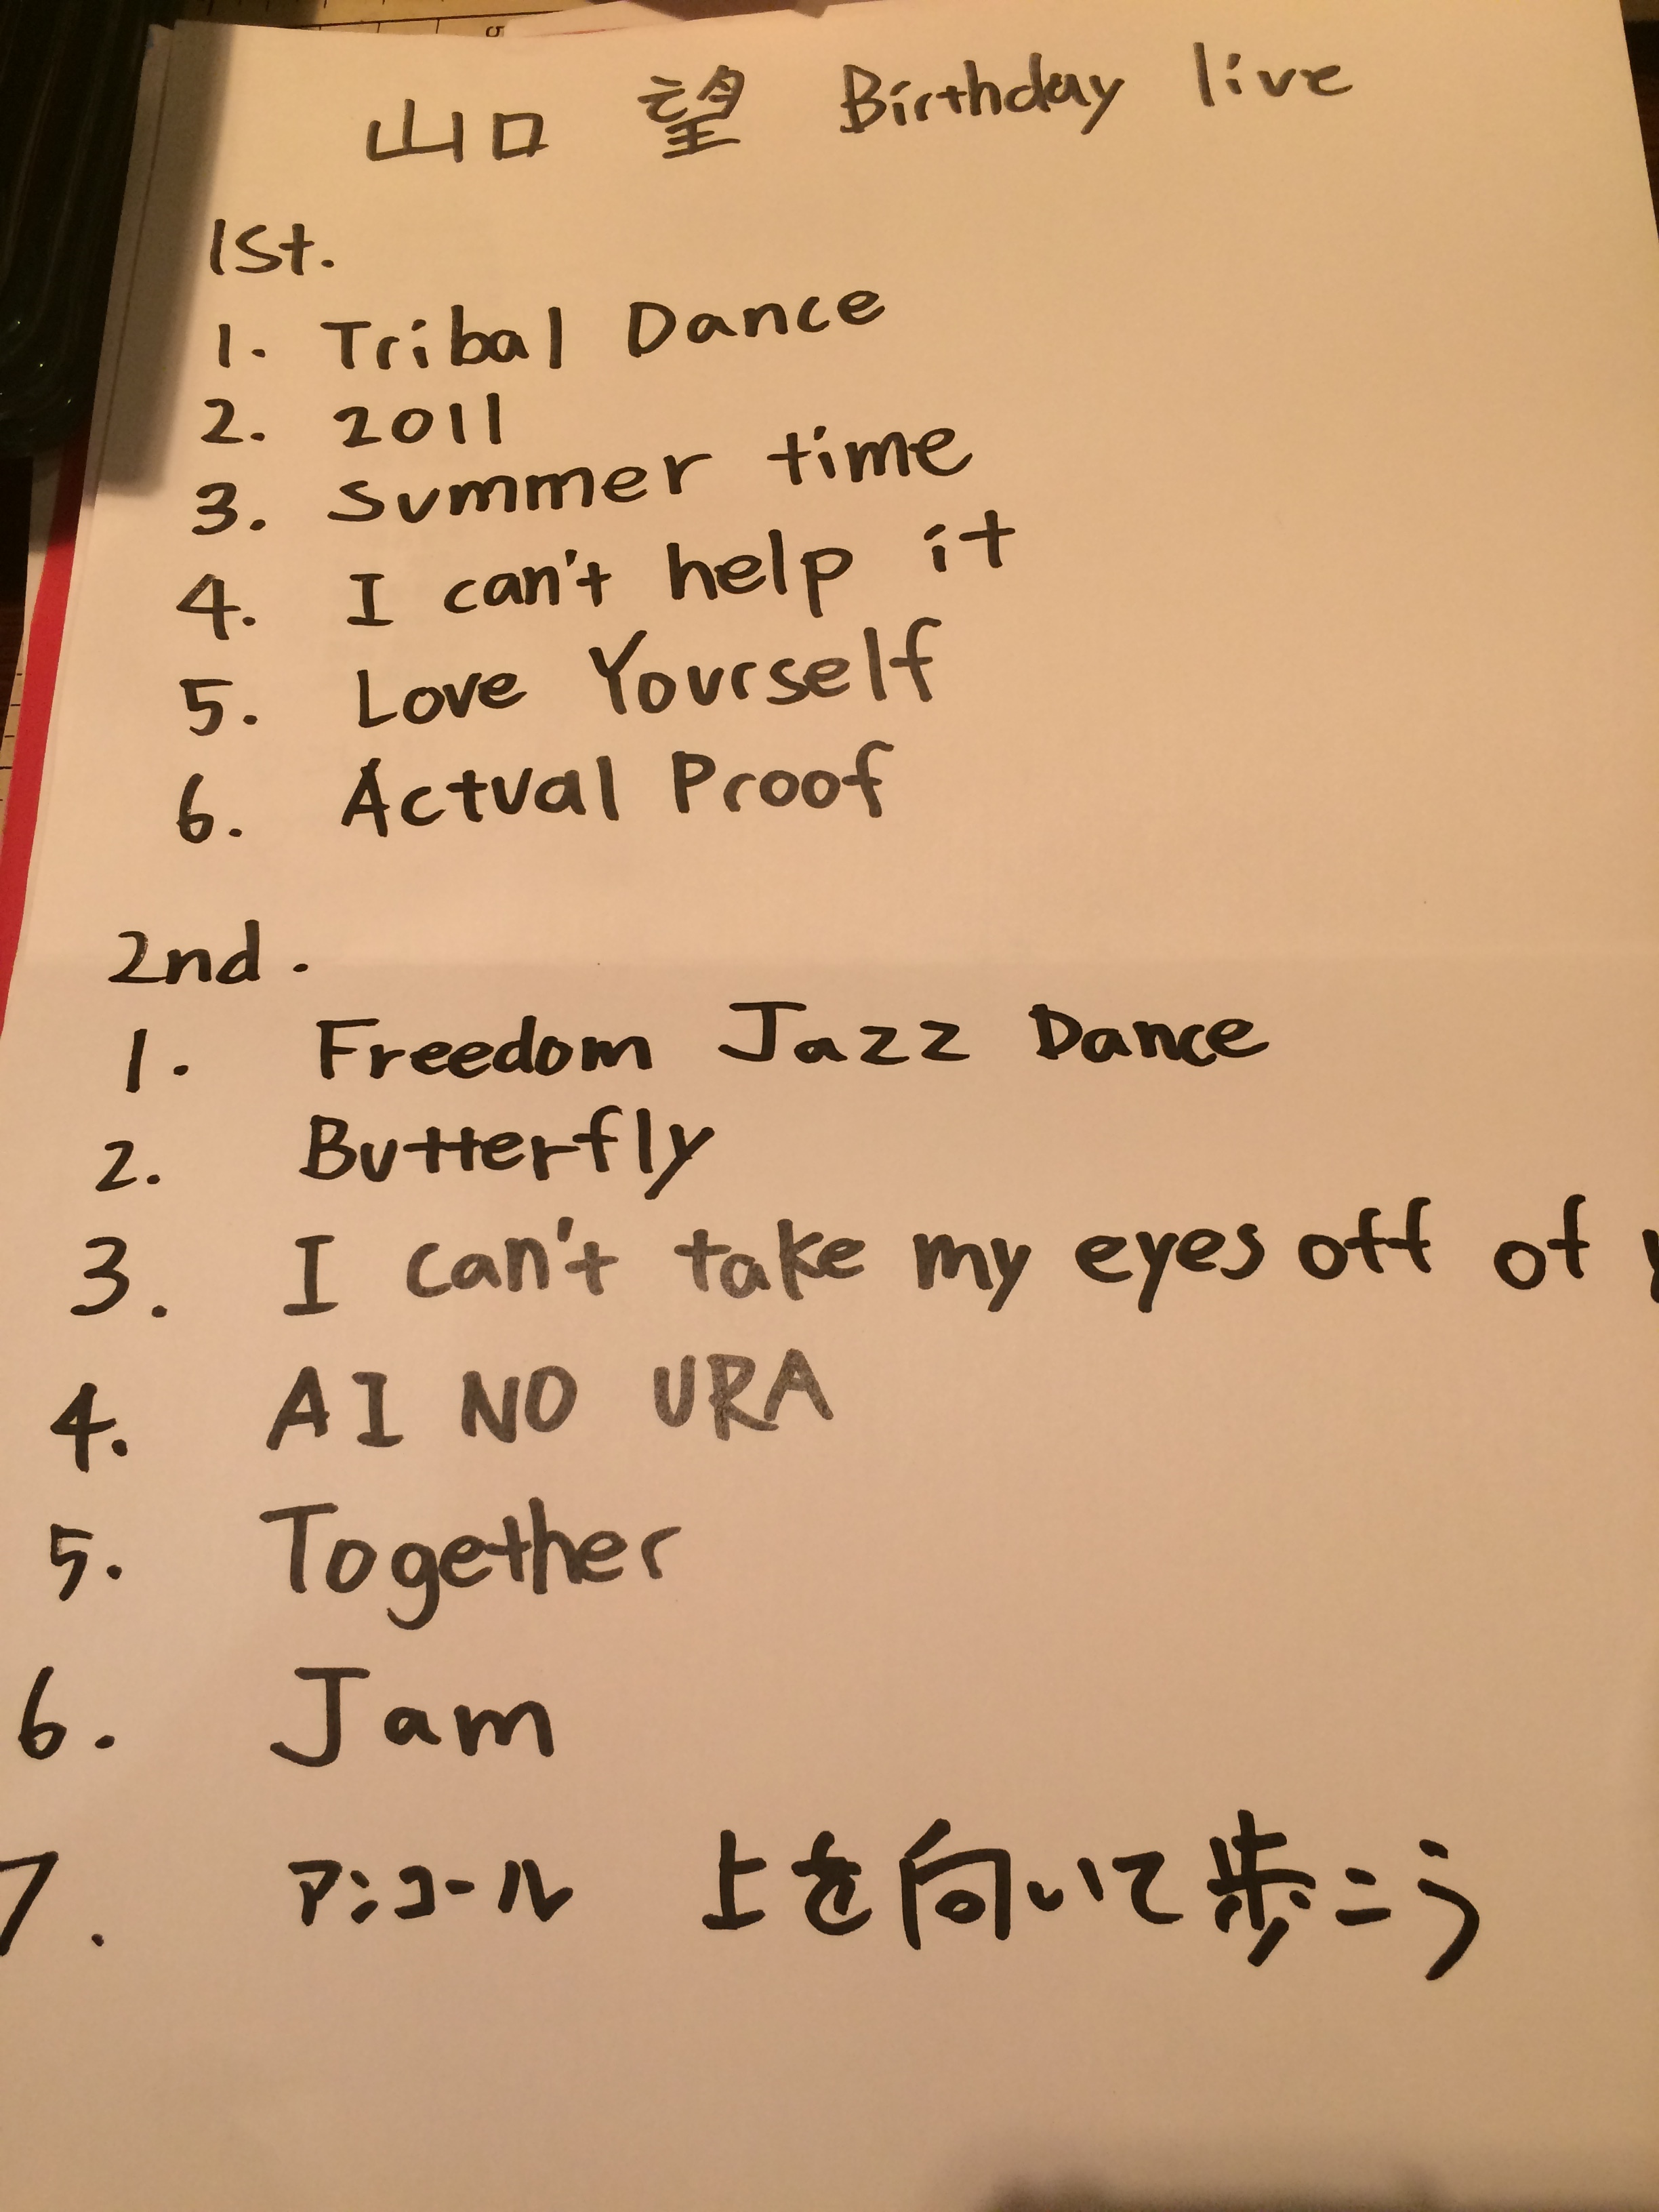 山口 望 Birthday live
1St.
1. Tribal Dance
2. 2011
3. Summer time
4. I can't help it
5. Love Yourself
6. Actual Proof
2nd.
1. Freedom Jazz Dance
2. Butterfly
3. I can't take my eyes off of
4. AI NO URA
5. Together
6. Jam
7. アンコール 上を向いて歩こう